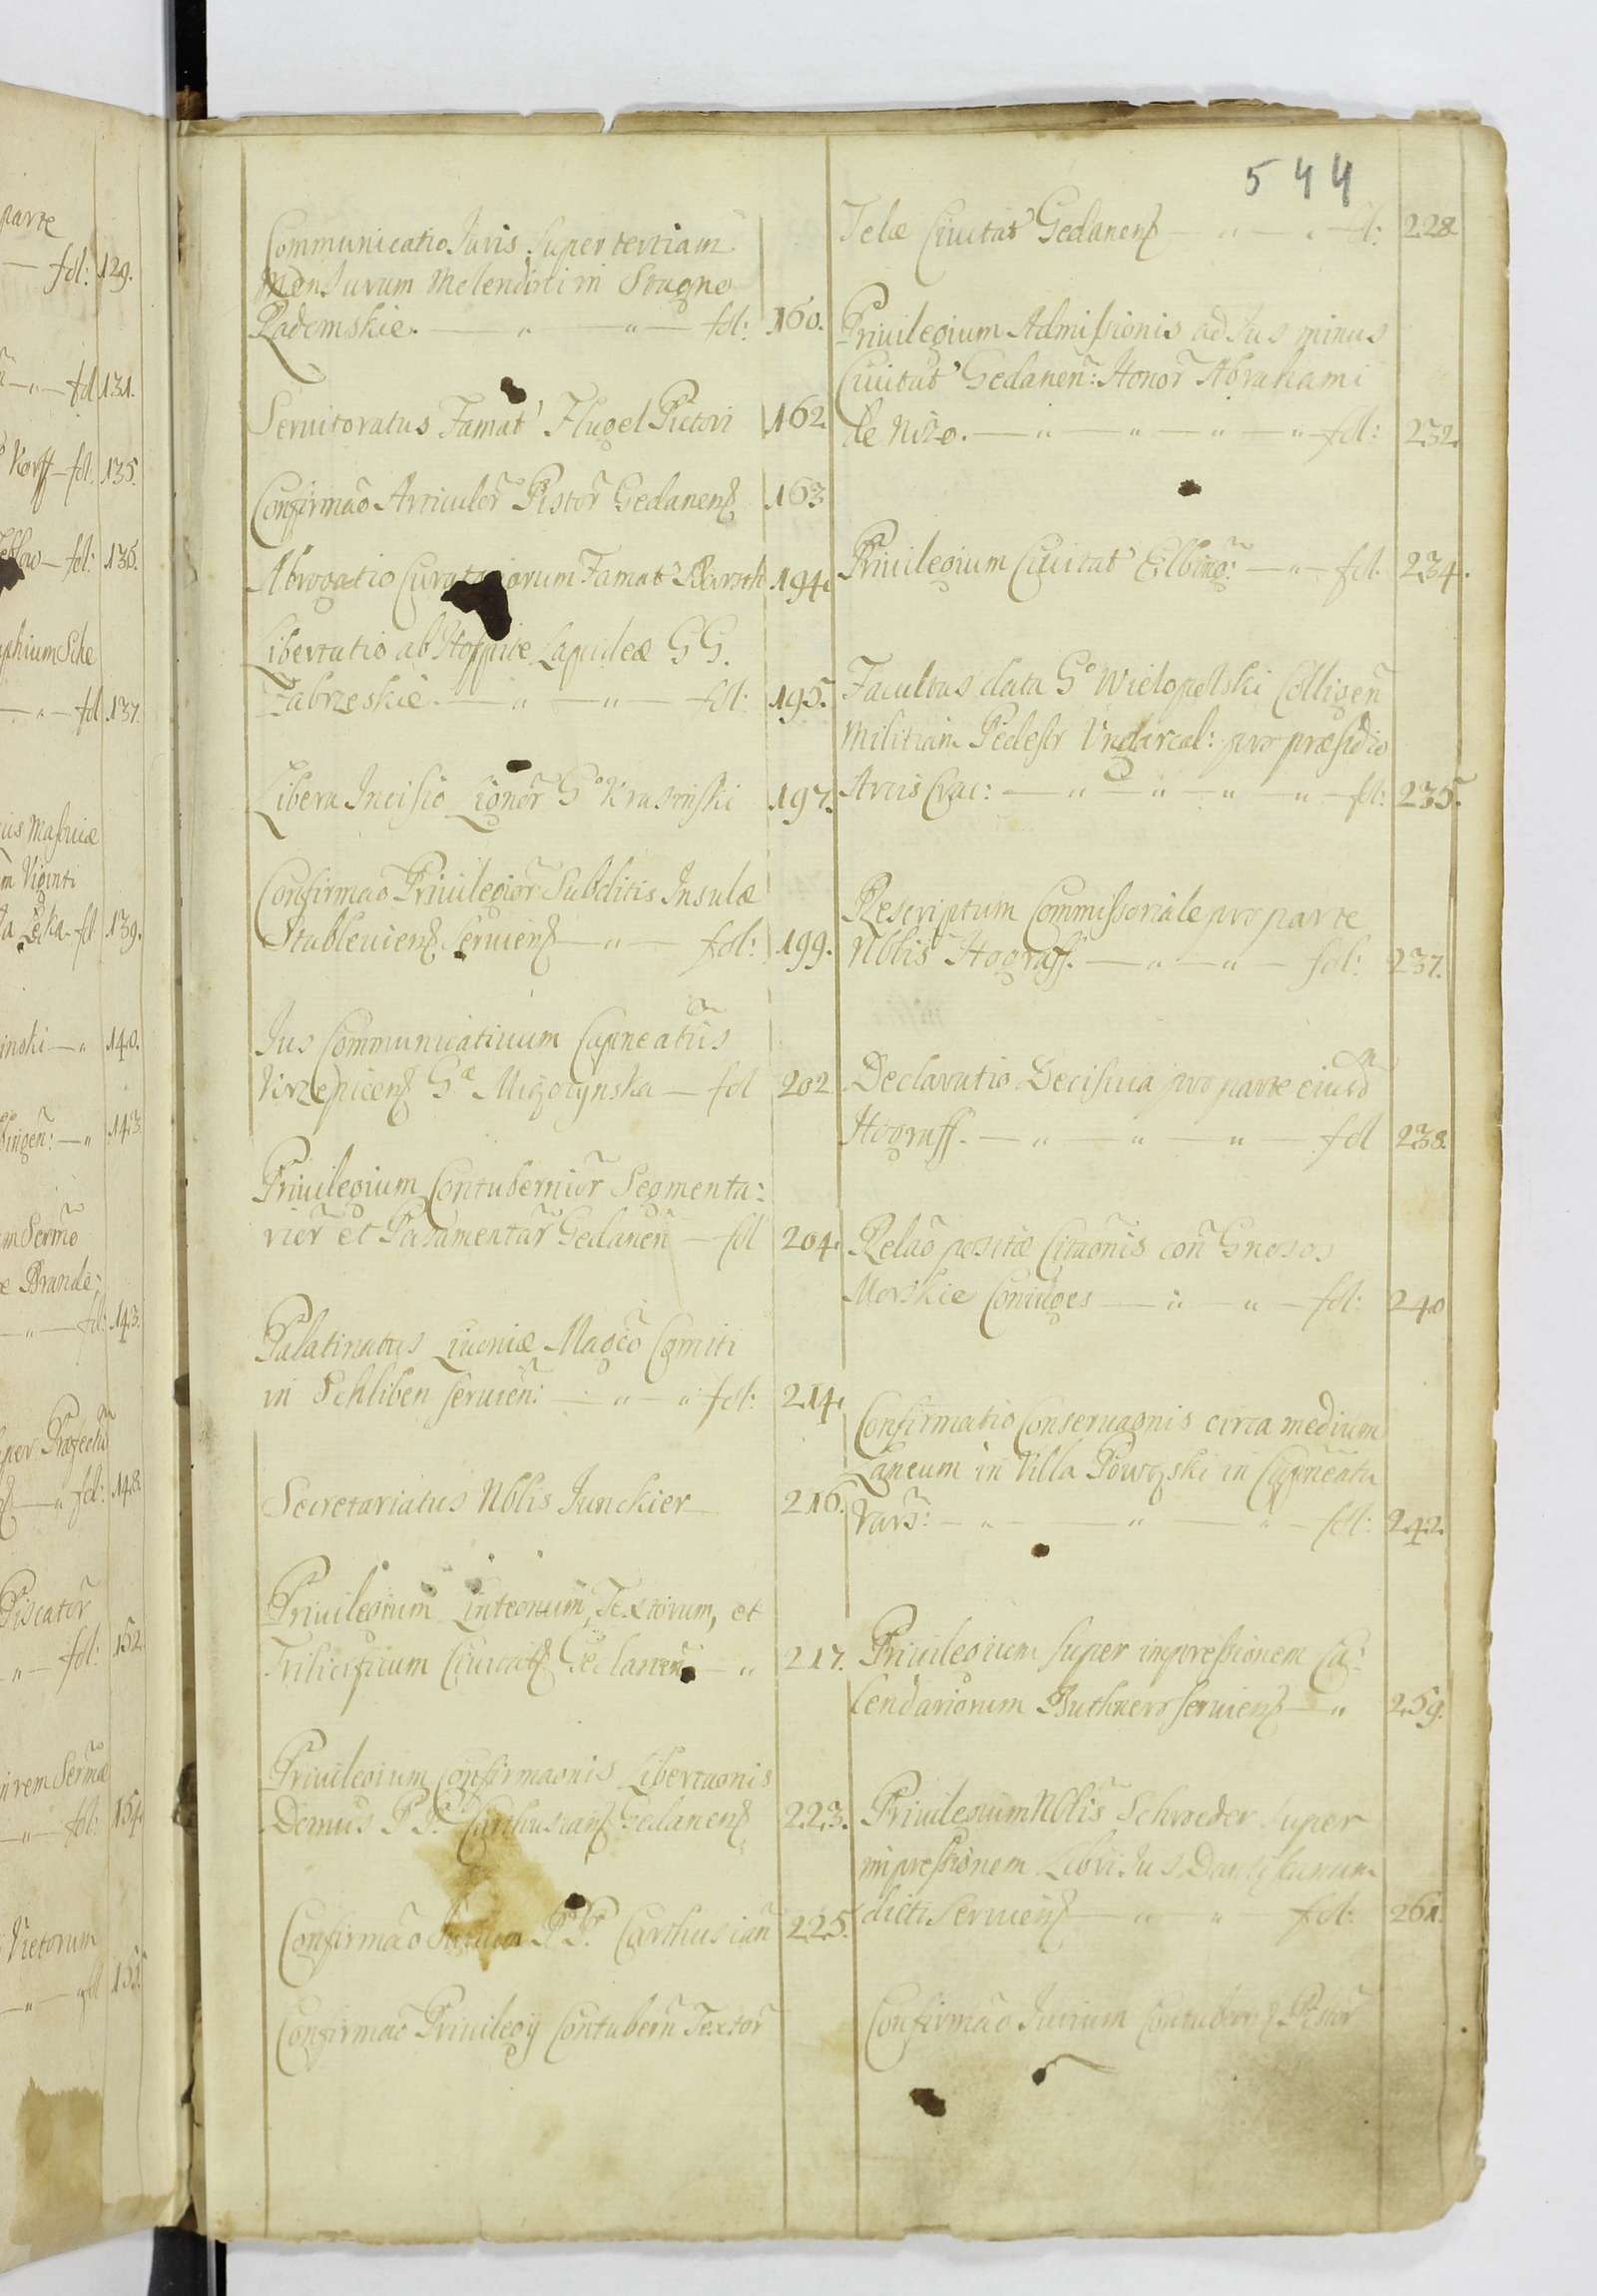 parte
fol: 129.
fol 131.
Korff fol. 135.
fol: 136.
fol 137.
us Masoviæ
m Viginti
fol 139.
inski " 140.
bingen: " 143.
m Serm̃o
e Brande:
fol: 143.
fol: 148.
Piscator̃
fol: 152.
virem Serm̃æ
fol: 154.
Vietorum
155.
544
Communicatio Juris Super tertiam
Mensuram Molendini in Stagno
Rademskie. fol: 160.
Servitoratus Famat' Flugel Pictori 162.
Confirmão Articulor̃ Pistor̃ Gedanens 163
Abrogatio Famat' 194.
Libertatio ab Hospite Lapideæ GG.
Zabrzeskie. fol: 195.
Libera Incisio Lignor̃ G° Krasinski 197.
Confirmão Privilegior̃ Subditis Insulæ
Stubleviens serviens fol: 199.
Jus Communicativum Capneatus̃
Krzepicens Gæ fol 202
Privilegium Contubernior̃ Segmenta:
rior̃ et Pasamentar̃ Gedanen̄ fol 204.
Palatinatus Livoniæ Magco Comiti
in Schliben servien̄: fol: 214.
Secretariatus Nblis Junckier 216.
Privilegium Linteonum, Textorum, et
Civitats Gedanen̄ " 217.
Privilegium Confirmaõnis Libertaõnis
Domus P P. Carthusians Gedanens 223.
Confirmão P P. Carthusian̄ 225.
Confirmão Privilegij Contubern̄ Textor̃
Telæ Civitat' Gedanens fol: 228
Privilegium Admissionis ad Jus minus
Civitat' Gedanen̄: Honor̃ Abrahami
de fol: 232.
Privilegium Civitat' Elbing̃: fol. 234.
Facultas data G° Wielopolski Colligen̄
Militiam Pedestr Vngarcal: pro præsidio
Arcis Crac: fol: 235.
Rescriptum Commissoriale pro parte
Nblis Hograff. fol: 237.
Declaratio Decisiva pro parte eiusd̃
Hograff. fol 238.
Relaõ positæ Citaõnis con̄ Gnosos
Morskie Coniuges fol: 240
Confirmatio Conservaõnis circa medium
Laneum in Villa Powozski in Capneatu
Vars: fol: 242.
Privilegium super impressionem Ca:
lendariorum Buthnero serviens " 259.
Privilegium Nblis Schroeder super
impressionem Libri Jus
dicti serviens fol: 261.
Confirmão Jurium Contubern Pistor̃